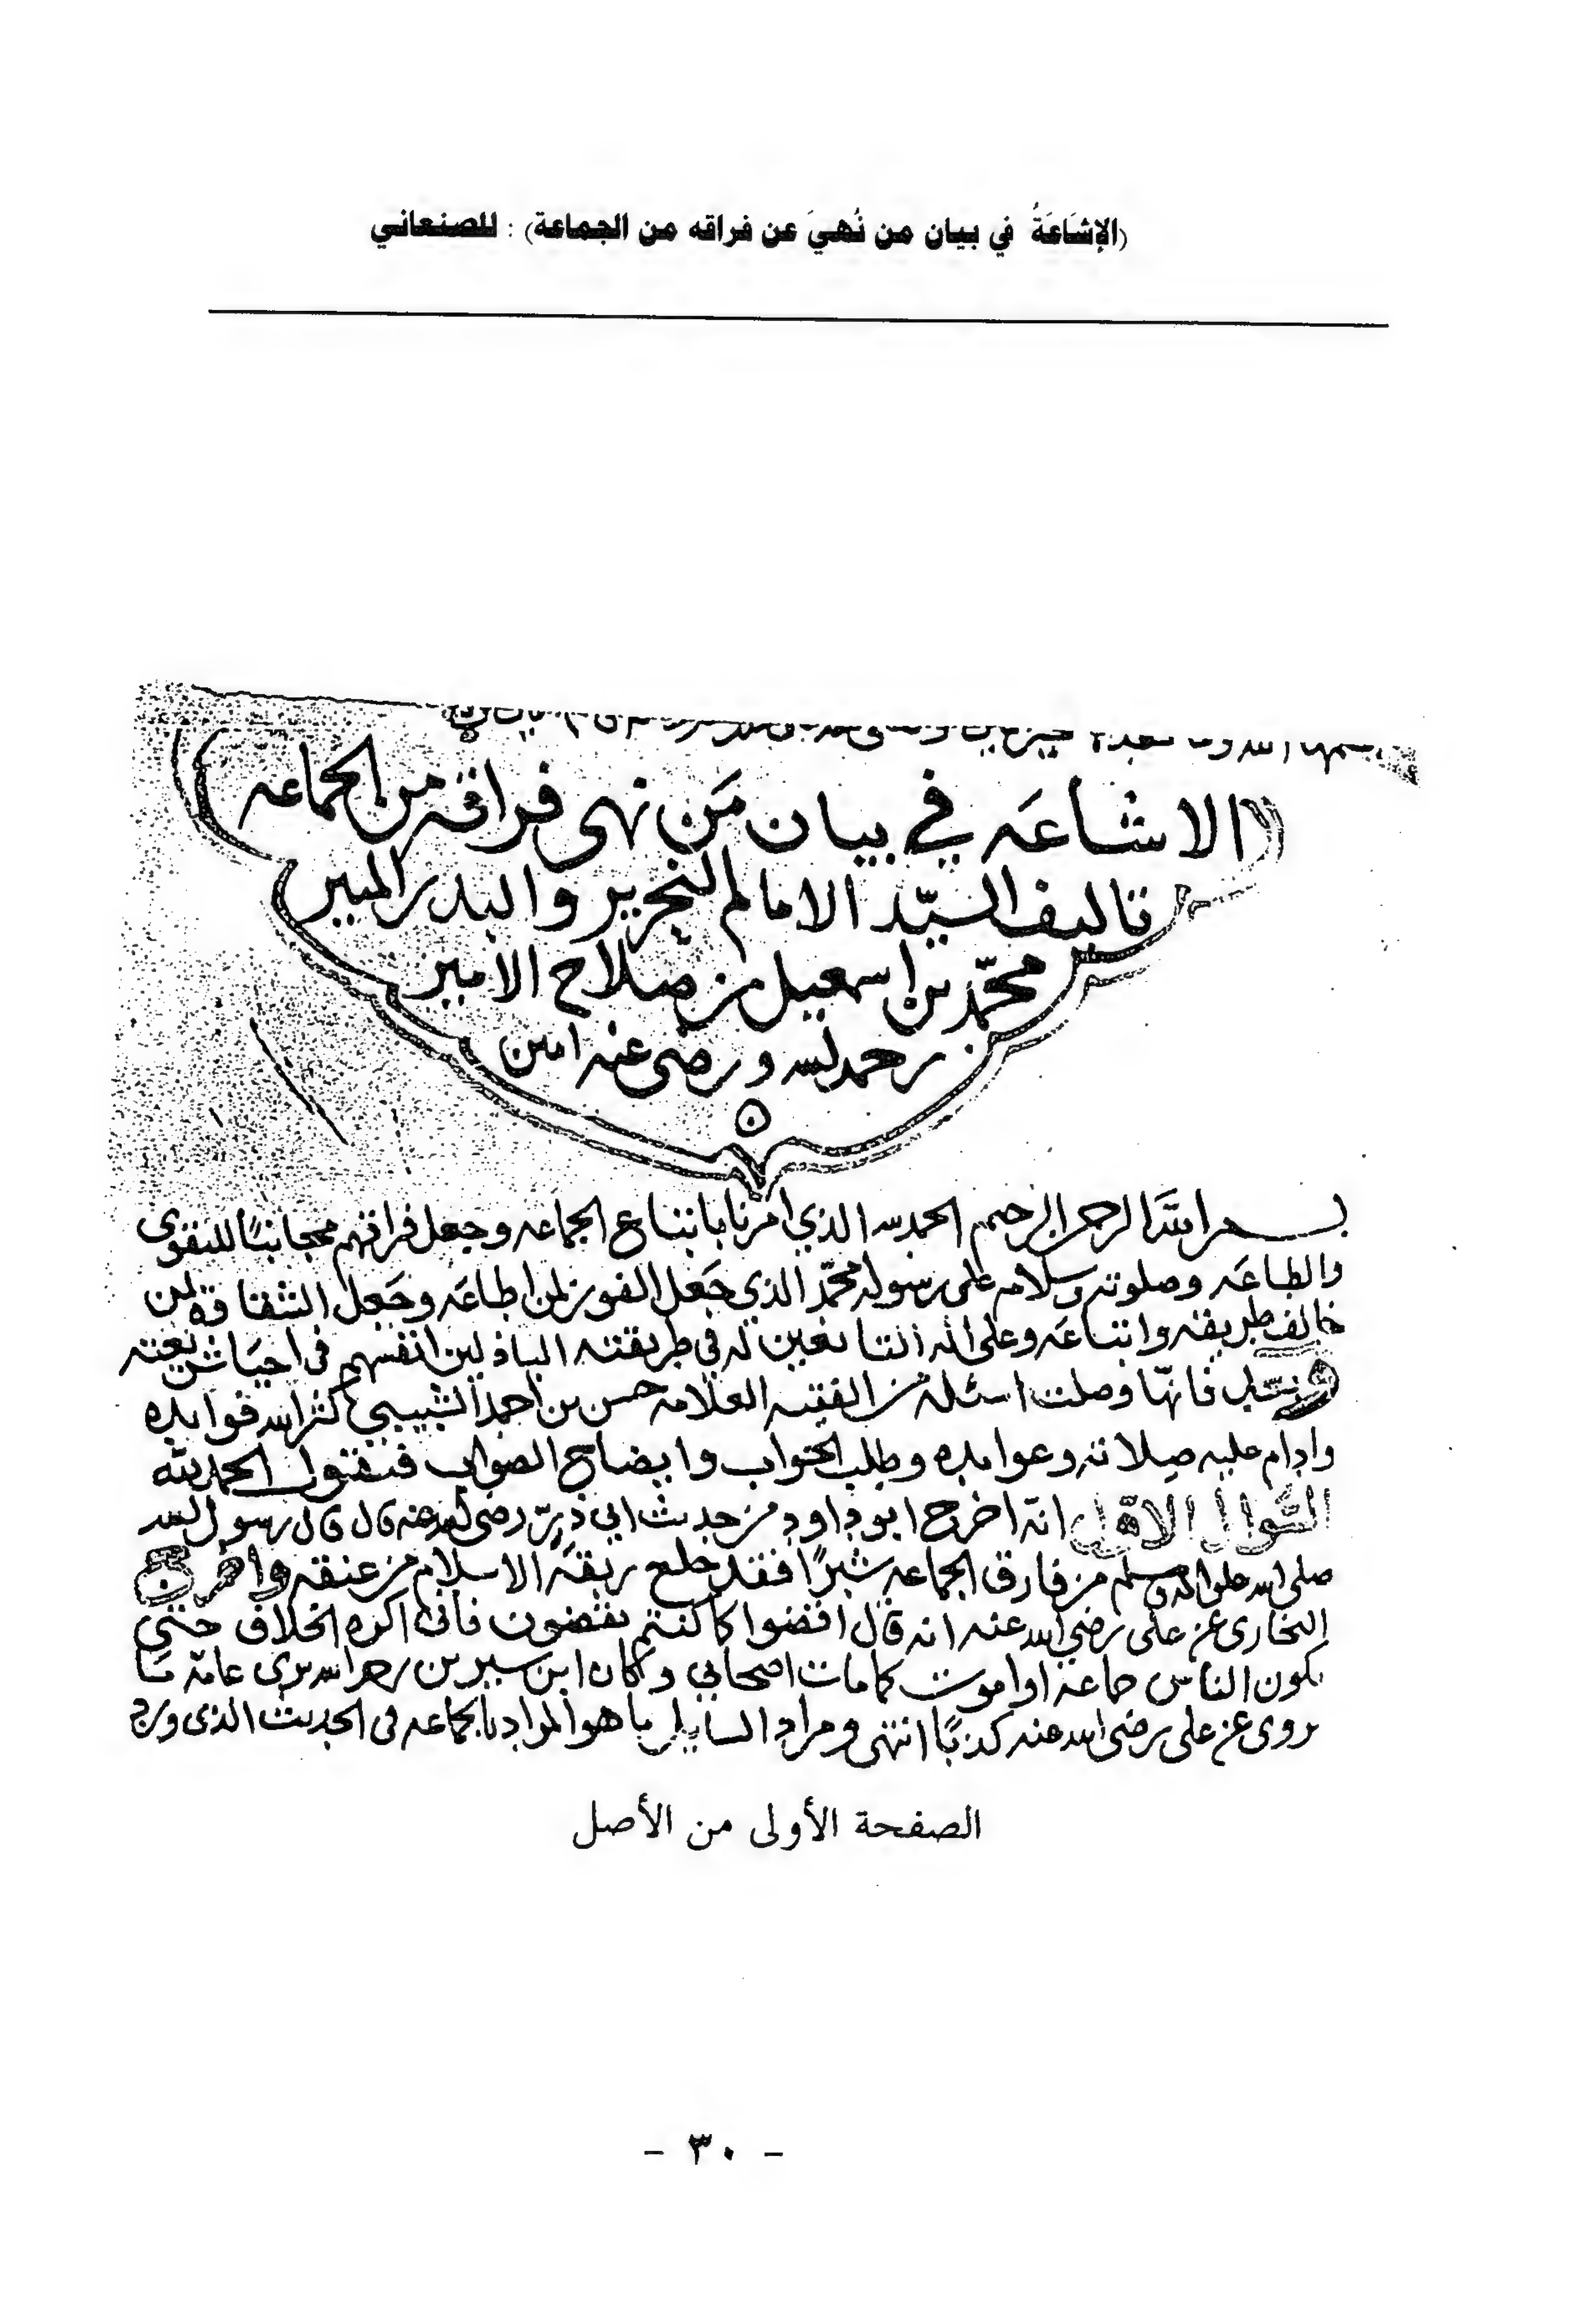 (الإشَاعَةُ في بيان من نُهيَ عن فراقه من الجماعة) : للصنعاني
الاشاعَه في بيان مَن نهى فراقه من الجماعه
تاليف السيّد الامام النحرير والبدر المنير
محمّد بن اسمعيل بن صلاح الامير
رحمه الله ورضي عنه امين
بسم الله الرحمن الرحيم الحمد لله الذي امرنا باتباع الجماعه وجعل فراقهم مجانبًا للتقوى
والطاعَه وصلوته وسلامه على رسوله محمّد الذي جَعل الفوز لمن اطاعَه وجَعل الشقاقه لمن
خالف طريقته واتباعَه وعلى اله التابعين له في طريقته الباذلين انفسهم في احيَا شريعته
وبعد فانهّا وصلت اسئله من الفقيه العلامه حسن بن احمد الشبيبي كثر الله فوايده
وادام عليه صلاته وعوايده وطلب الجواب وايضاح الصواب فنقول الحمد لله
السّوال الاوّل انّه اخرج ابو داود من حديث ابي ذرّ رضي الله عنه قال قال رسول الله
صلى الله عليه واله وسلم من فارق الجماعه شبرًا فقد خلع ربقة الاسلام من عنقه واخرج
البخاري عن علي رضي الله عنه انه قال اقضوا كما كنتم تقضون فاني اكره الخلاف حتى
يكون الناس جماعه او اموت كما مات اصحابي وكان ابن سيرين رحمه الله يرى عامّة مَا
يروى عن علي رضي الله عنه كذبًا انتهى ومراد السايل ما هو المراد بالجماعه في الحديث الذي ورد
الصفحة الأولى من الأصل
- ٣٠ -